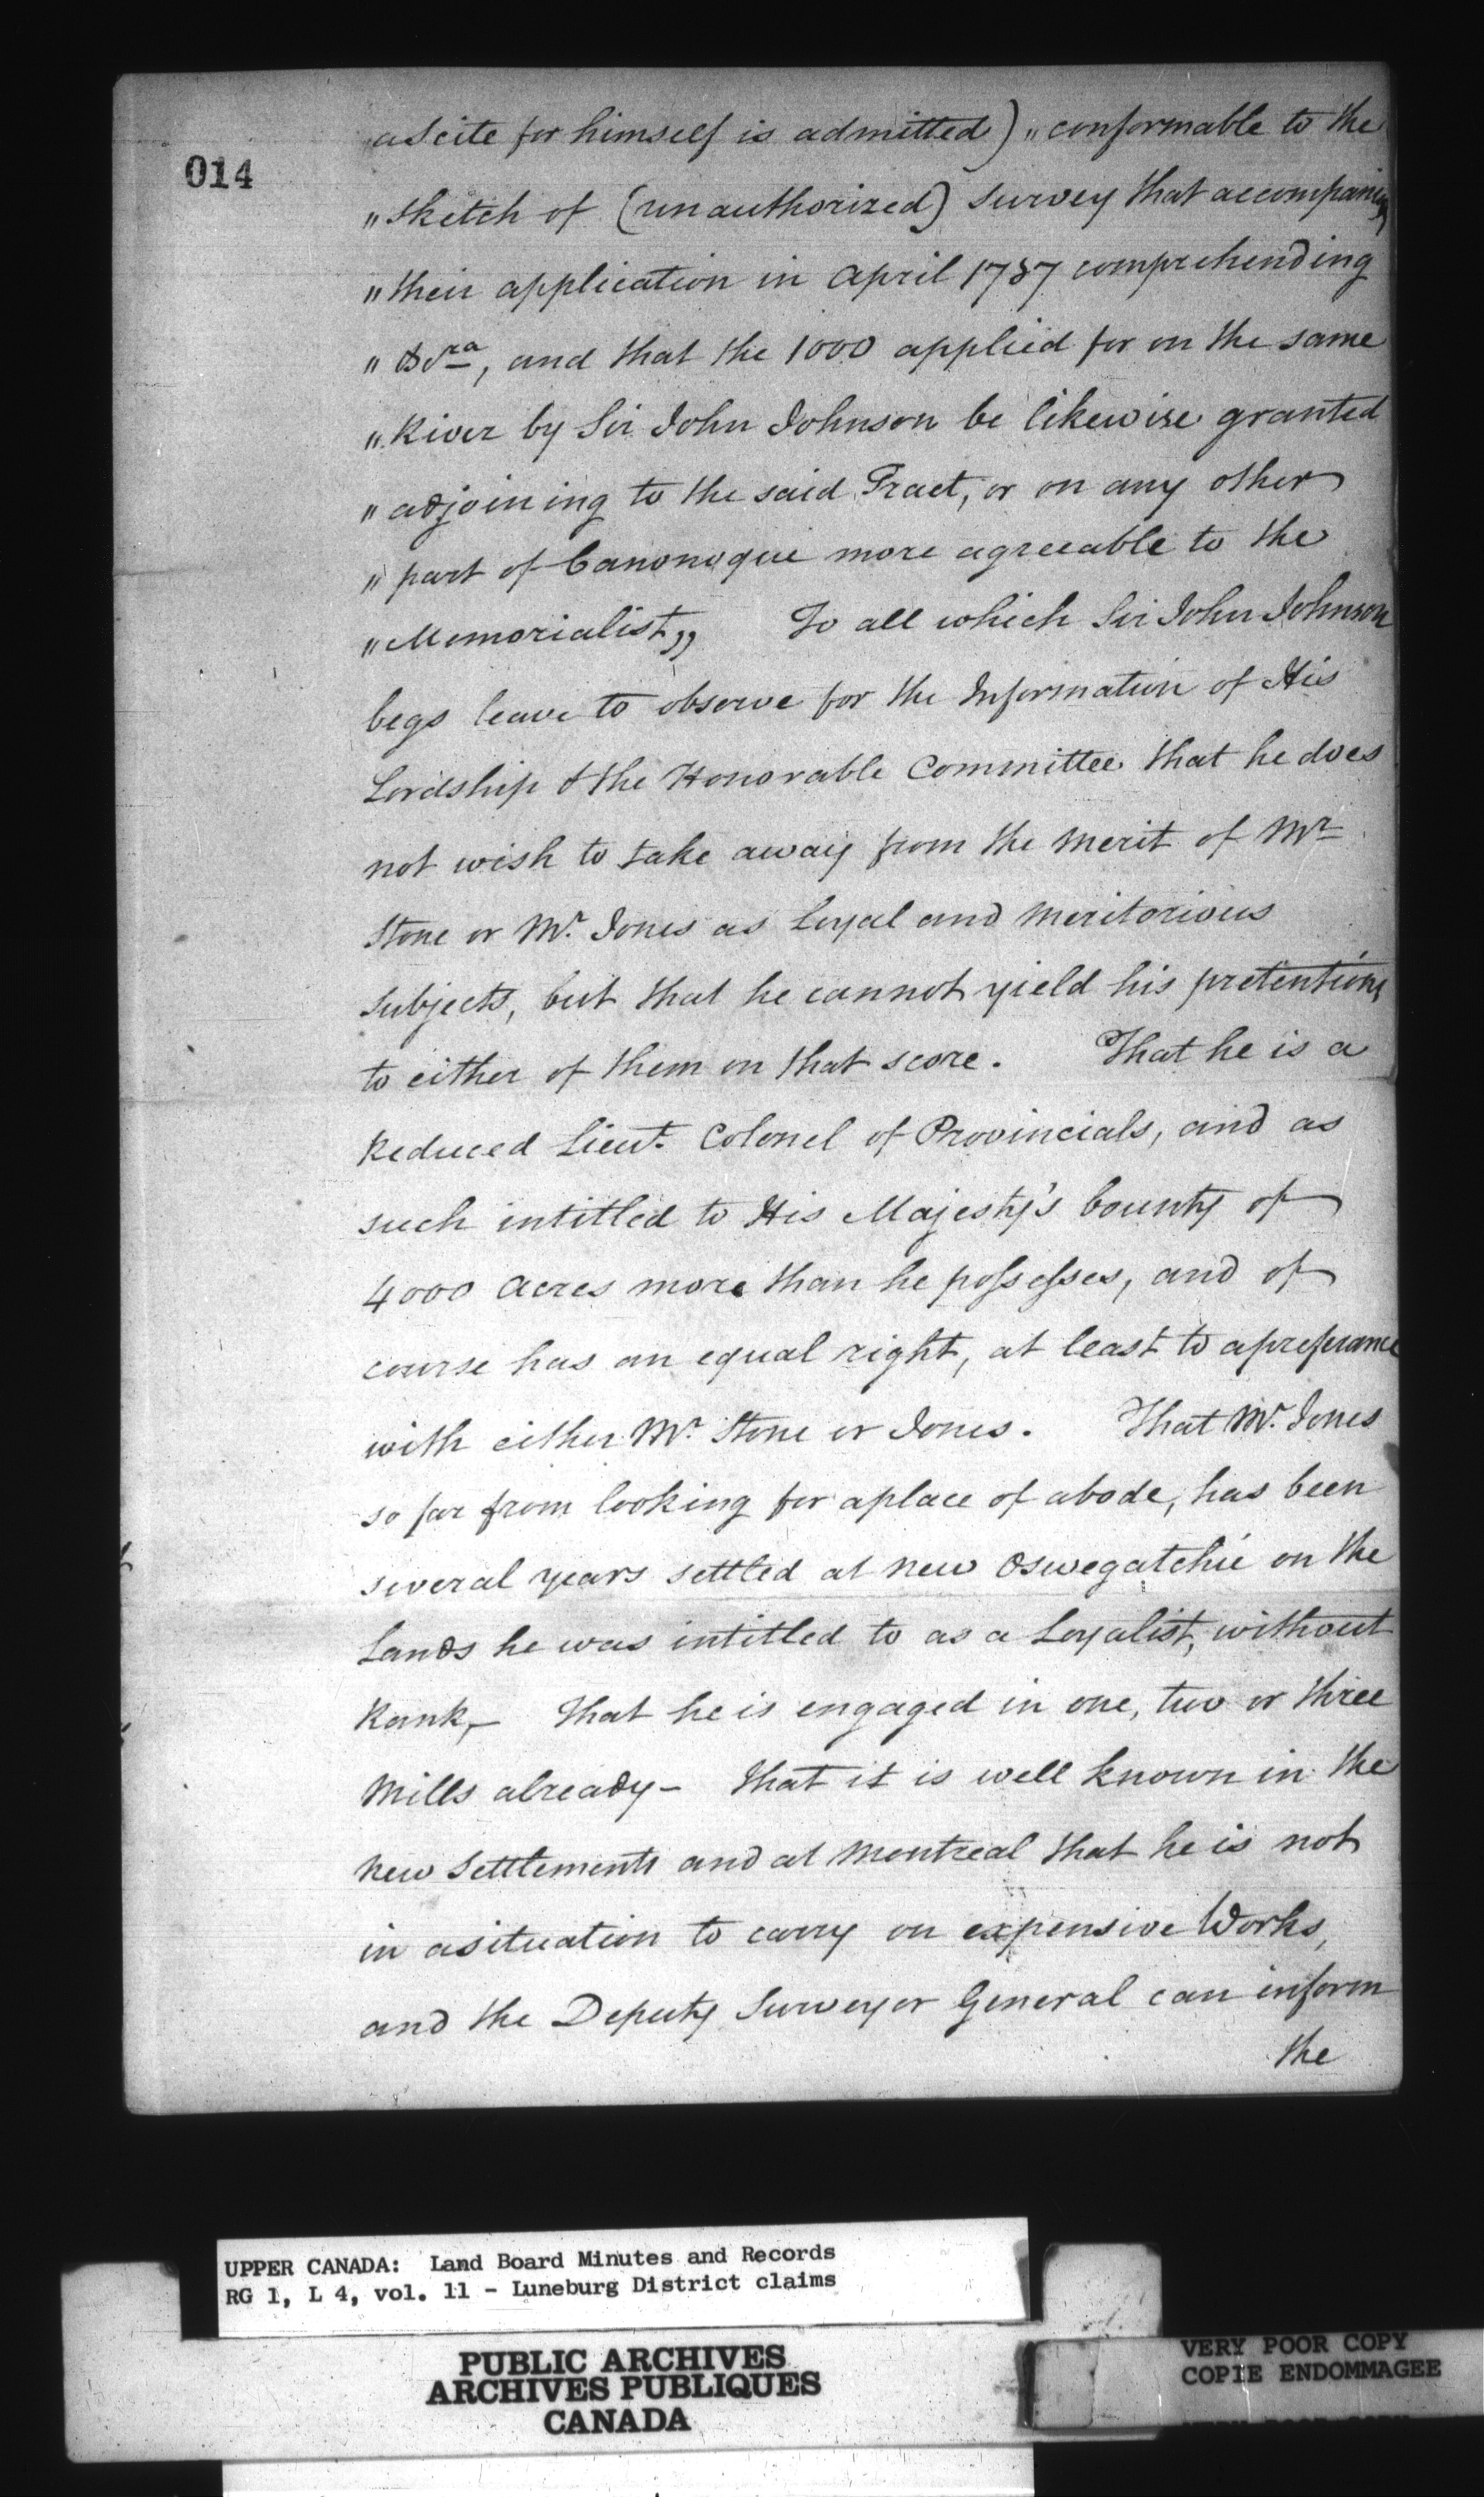 014
a Scite for himself is admitted) „ conformable to the
„ sketch of (unauthorized) survey that accompanied
„ their application in April 1787 comprehending
„ &cra, and that the 1000 applied for on the same
„ River by Sir John Johnson be likewise granted
„ adjoining to the said Tract, or on any other
„ part of Canonoque more agreeable to the
„ Memorialist„ To all which Sir John Johnson
begs leave to observe for the Information of His
Lordship & the Honorable Committee that he does
not wish to take away from the merit of Mr
Stone or Mr. Jones as Loyal and meritorious
subjects, but that he cannot yield his pretentions
to either of them on that score. That he is a
Reduced Lieut. Colonel of Provincials, and as
such intitled to His Majesty's bounty of
4000 Acres more than he possesses, and of
course has an equal right, at least to a preferance
with either Mr. Stone or Jones. That Mr. Jones
so far from looking for a place of abode, has been
several years settled at new Oswegatchie on the
Lands he was intitled to as a Loyalist, without
Rank, – that he is engaged in one, two or three
Mills already – that it is well known in the
new Settlements and at Montreal that he is not
in a situation to carry on expensive Works,
and the Deputy Surveyor General can inform
the
UPPER CANADA: Land Board Minutes and Records
RG 1, L 4, vol. 11 - Luneburg District claims
PUBLIC ARCHIVES
ARCHIVES PUBLIQUES
CANADA
VERY POOR COPY
COPIE ENDOMMAGEE